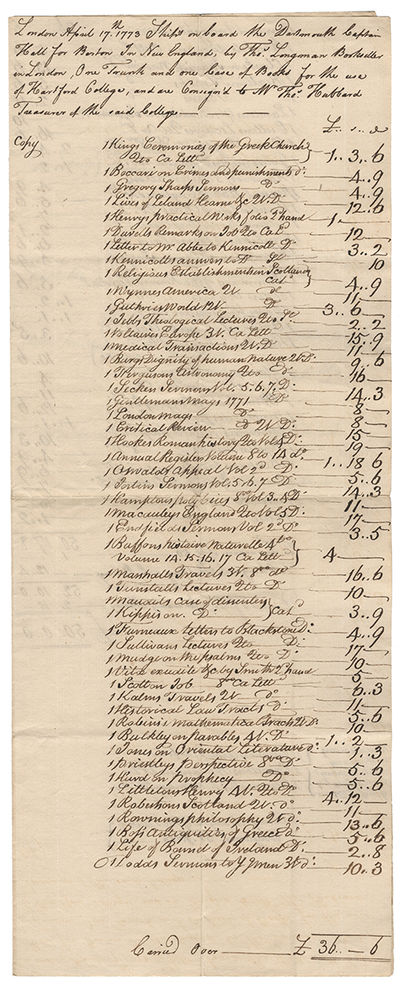 London April 17.th 1773 Ship'd on board the Dartmouth Captain
Hall for Boston In New England, by Tho.s Longman Bookseller
in London, One Trunk and one Case of Books for the use
of Hartford College, and are Consign'd to Mr Tho.s Hubbard
Treasurer of the said College
£ .. s .. d
Copy
1 Kings Ceremonies of the Greek Church
4to Ca Lett } 1 .. 3 .. 6
1 Beccari on Crimes and punishments do. 4 .. 9
1 Gregory Sharps Sermons Do 4 .. 9
1 Lives of Leland Hearne &c 2V. D. 12 .. 6
1 Henrys practical Works folio 2d hand 1
1 Durells Remarks on Job 4to Cal 12
1 Letter to Mr Abbe to Kennicott Do 3 .. 2
1 Kennicotts answer to Do 10
1 Religious Establishment in Scotland
Cat 4 .. 9
1 Wynnes America 2V do 11
1 Guthries World 12V. Do 3 .. 6
1 Tells Theological Lectures 4to 2 .. 2
1 Voltaires Europe 3V. Ca Lett 15 .. 9
1 Medical Transactions 2V. D. 11
1 Burgs Dignity of human Nature 2V. D. 9 .. 6
1 Fergusons Astronomy 4to Do 16
1 Seckers Sermons Vol. 5. 6. 7. Do 14 .. 3
1 Gentlemans Mag. 1771 Do 8
1 London Mag. Do 8
1 Critical Review Do 2V. D. 15
1 Hookes Roman history 4to Vol 4 D. 19
1 Annual Register Volume 8 to 14 do. 1 .. 18 .. 6
1 Oswalds Appeal Vol 2d Do 5 .. 6
1 Jortins Sermons Vol. 5. 6. 7 Do 14 .. 3
1 Hamptons polybius 8vo Vol 3. 4 Do 11
1 Macauleys England 4to Vol 5 Do 17
1 Enfields Sermons Vol 2d Do 3 .. 5
1 Buffons histoire Naturelle 4to
Volume 14. 15. 16. 17 Ca Lett } 4
1 Marshalls Travels 3V. 8vo do 16 .. 6
1 Tunstalls Lectures 4to Do 10
1 Mauduits case of disenters
1 Kippis on Do } Cat 3 .. 9
1 Furneaux Letters to Blackstone Do. 4 .. 9
1 Sullivans Lectures 4to Do 17
1 Mudge on the psalms 4to Do 10
1 Vita erudite &c by Smith 2d hand 5
1 Scott on Job Ca Lett 6 .. 3
1 Kalms Travels 2V Do 11
1 Historical Law Tracts Do 5 .. 6
1 Robins's Mathematical Tracts 2V. D. 10
1 Bulkley on parables 4V. Do 1 .. 2
1 Jones on Oriental Literature do. 1 .. 3
1 priestleys perspective 8vo Do 5 .. 6
1 Hurd on prophecy Do 5 .. 6
1 Littletons Henry 4V. 4to. Do 4 .. 12
1 Robertsons Scotland 2V. do 11
1 Rownings philosophy 2V do 13 .. 6
1 Boss Antiquities of Greece do 5 .. 6
1 Life of of Ireland D. 2 .. 8
1 Dodds Sermons to Y Men 3V. do. 10 .. 3
Carried Over £ 36 .. 6